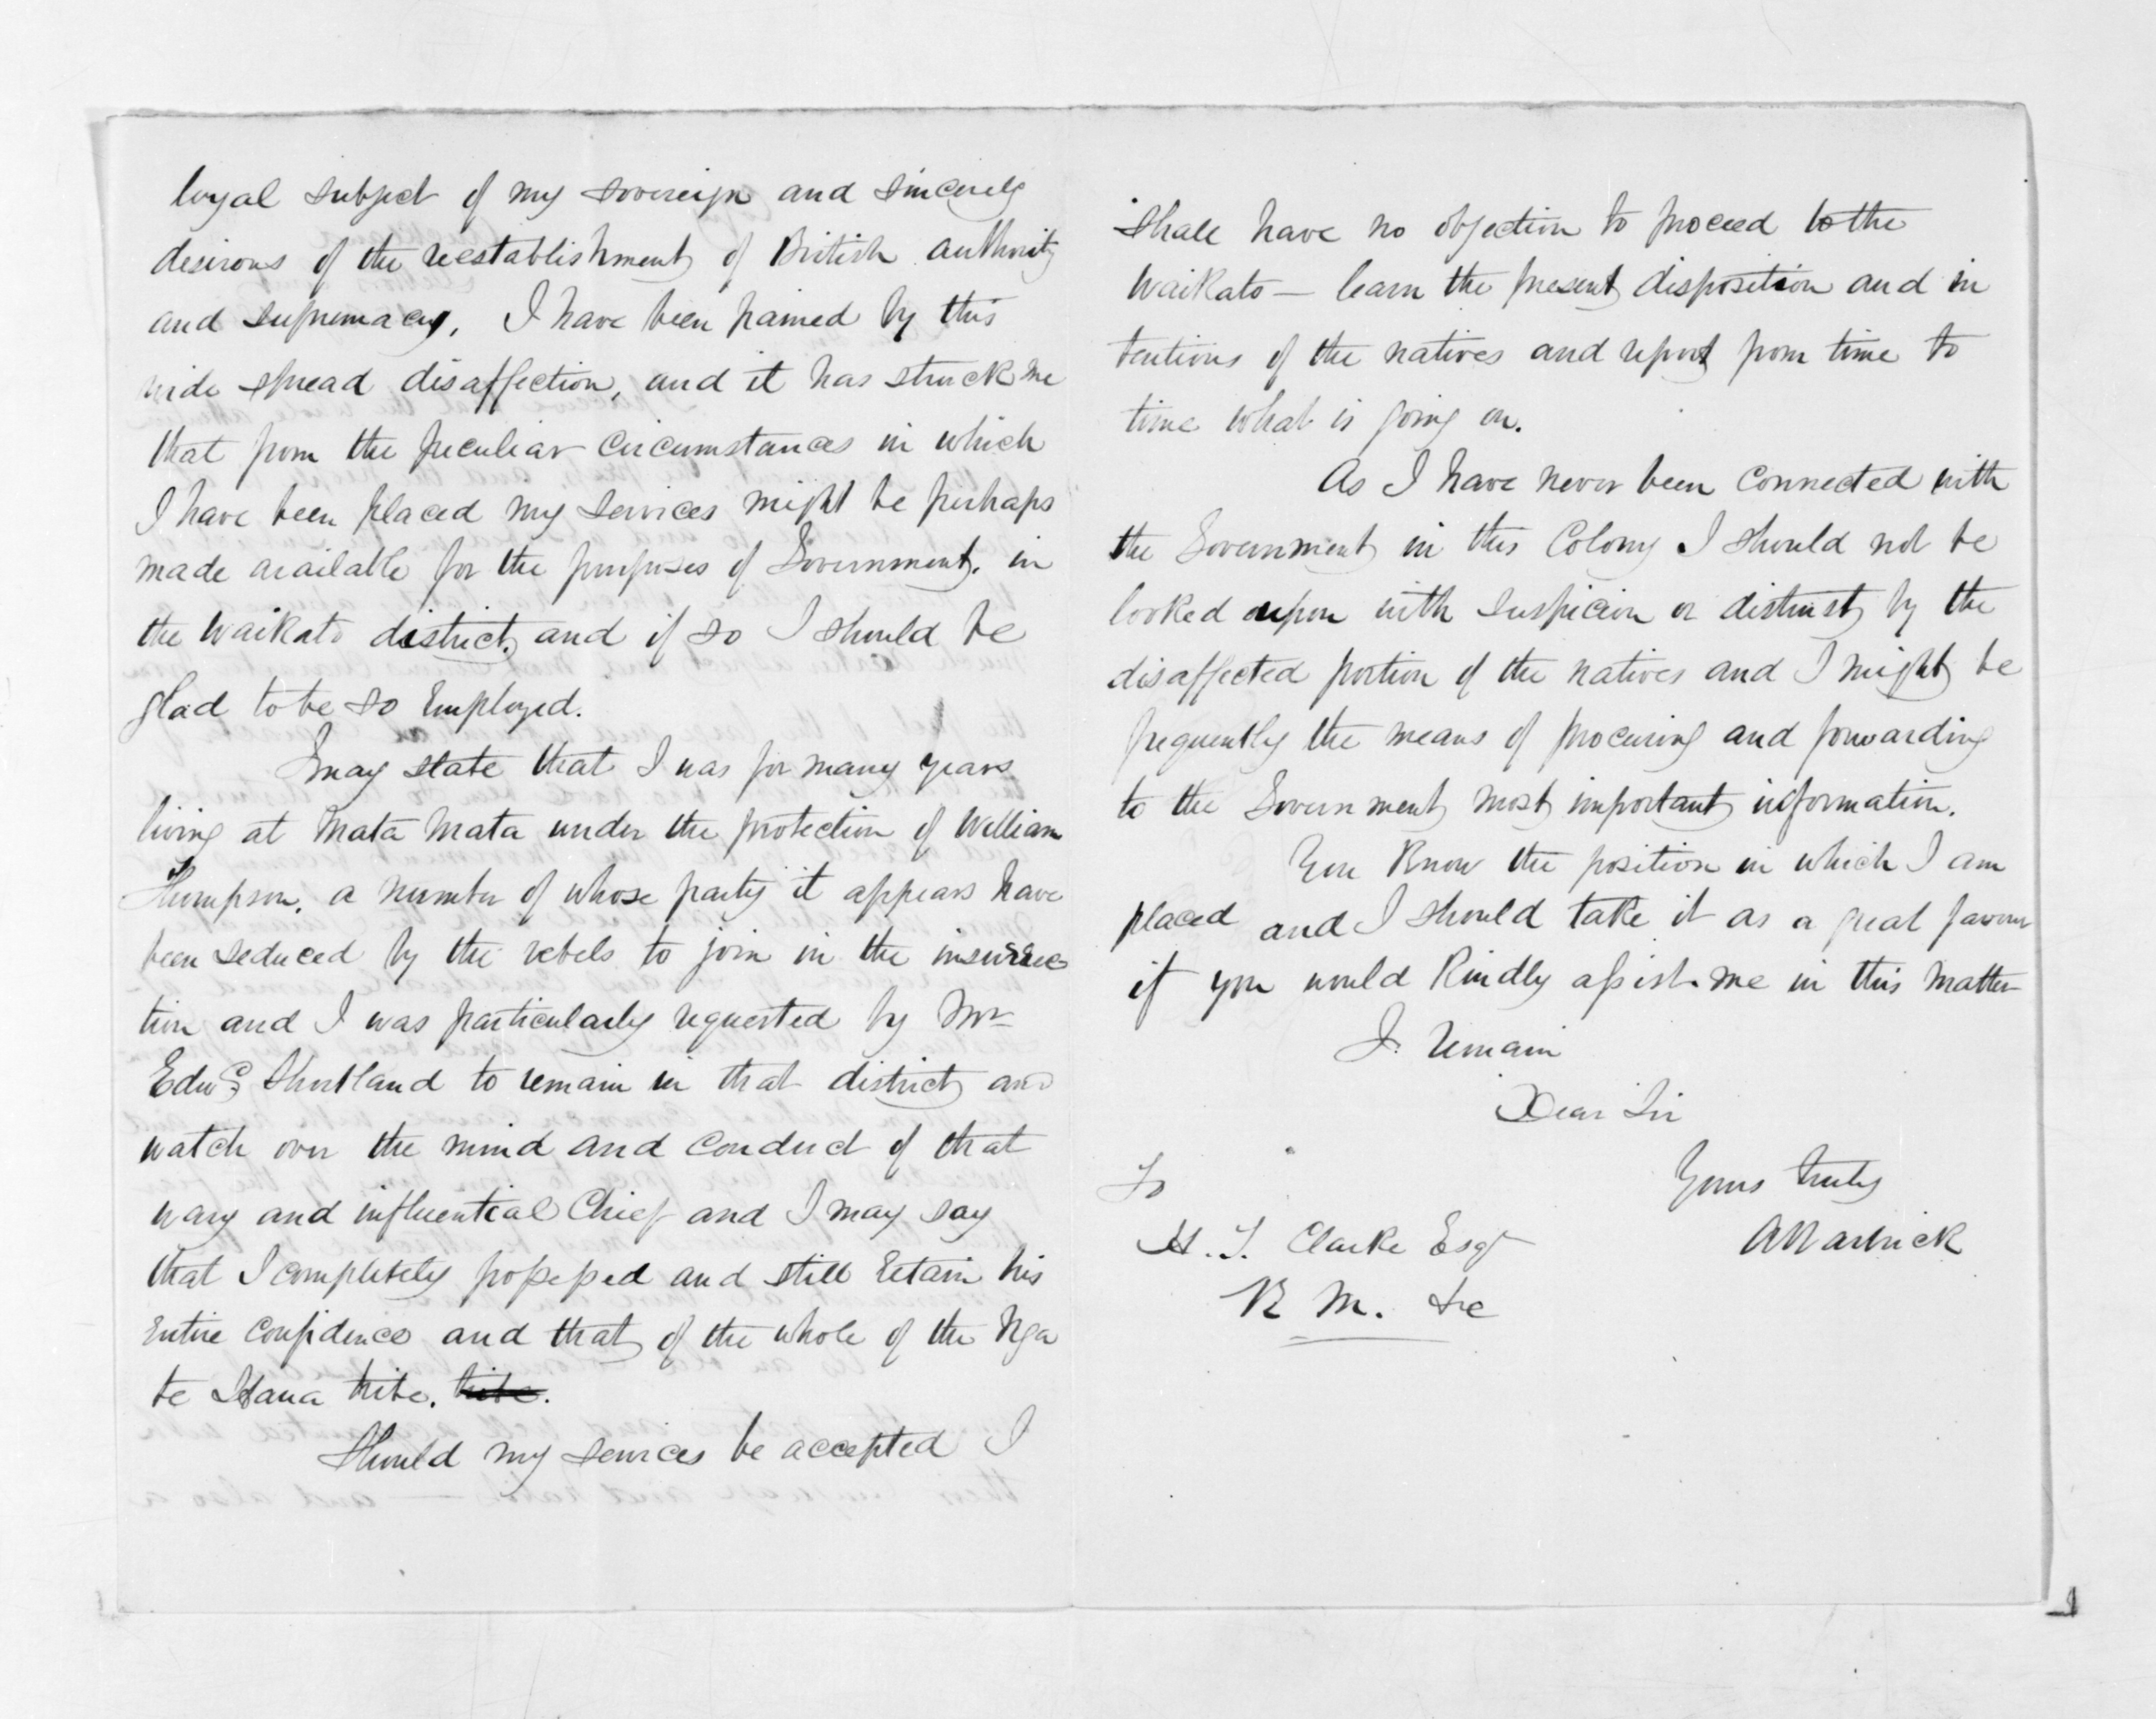 loyal subject of my sovereign and sincerely
desirous of the reestablishment of British authority
and supremacy, I have been pained by this
wide spread disaffection, and it has struck me
that from the peculiar circumstances in which
I have been placed my services might be perhaps
made available for the purposes of Government, in
the Waikato district, and if so I should be
glad to be so employed.
I may state that I was for many years
living at Mata Mata under the protection of William
Thompson, a number of whose party it appears have
been seduced by the rebels to join in the insurrec
tion and I was particularly requested by Mr
Edwd Shortland to remain in that district and
watch over the mind and conduct of that
wary and influential Chief and I may say
that I completely possessed and still retain his
entire confidence and that of the whole of the Nga
te Haua tribe. tribe.
Should my services be accepted I
shall have no objection to proceed to the
Waikato — learn the present disposition and in
tentions of the natives and report from time to
time what is going on.
As I have never been connected with
the Government in this Colony I should not be
looked upon with suspicion or distrust by the
disaffected portion of the natives and I might be
frequently the means of procuring and forwarding
to the Government most important information.
You know the position in which I am
placed and I should take it as a great favour
if you would kindly assist me in this matter
I remain
Dear Sir
Yours truly
A Warbrick
To
H. T. Clarke Esqr
R M. &c